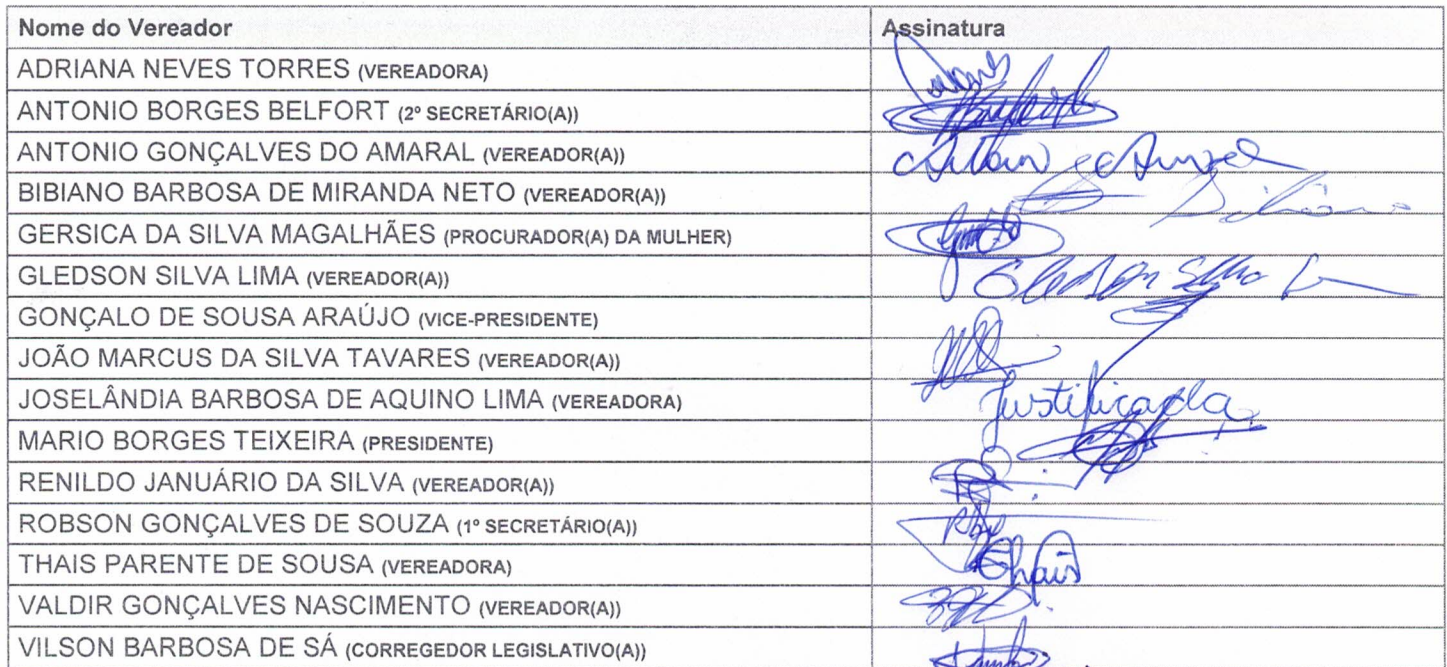 Nome do Vereador Assinatura
ADRIANA NEVES TORRES (VEREADORA)
ANTONIO BORGES BELFORT (2º SECRETÁRIO(A))
ANTONIO GONÇALVES DO AMARAL (VEREADOR(A))
BIBIANO BARBOSA DE MIRANDA NETO (VEREADOR(A))
GERSICA DA SILVA MAGALHÃES (PROCURADOR(A) DA MULHER)
GLEDSON SILVA LIMA (VEREADOR(A))
GONÇALO DE SOUSA ARAÚJO (VICE-PRESIDENTE)
JOÃO MARCUS DA SILVA TAVARES (VEREADOR(A))
JOSELÂNDIA BARBOSA DE AQUINO LIMA (VEREADORA) Justificada
MARIO BORGES TEIXEIRA (PRESIDENTE)
RENILDO JANUÁRIO DA SILVA (VEREADOR(A))
ROBSON GONÇALVES DE SOUZA (1º SECRETÁRIO(A))
THAIS PARENTE DE SOUSA (VEREADORA) Thais
VALDIR GONÇALVES NASCIMENTO (VEREADOR(A))
VILSON BARBOSA DE SÁ (CORREGEDOR LEGISLATIVO(A))